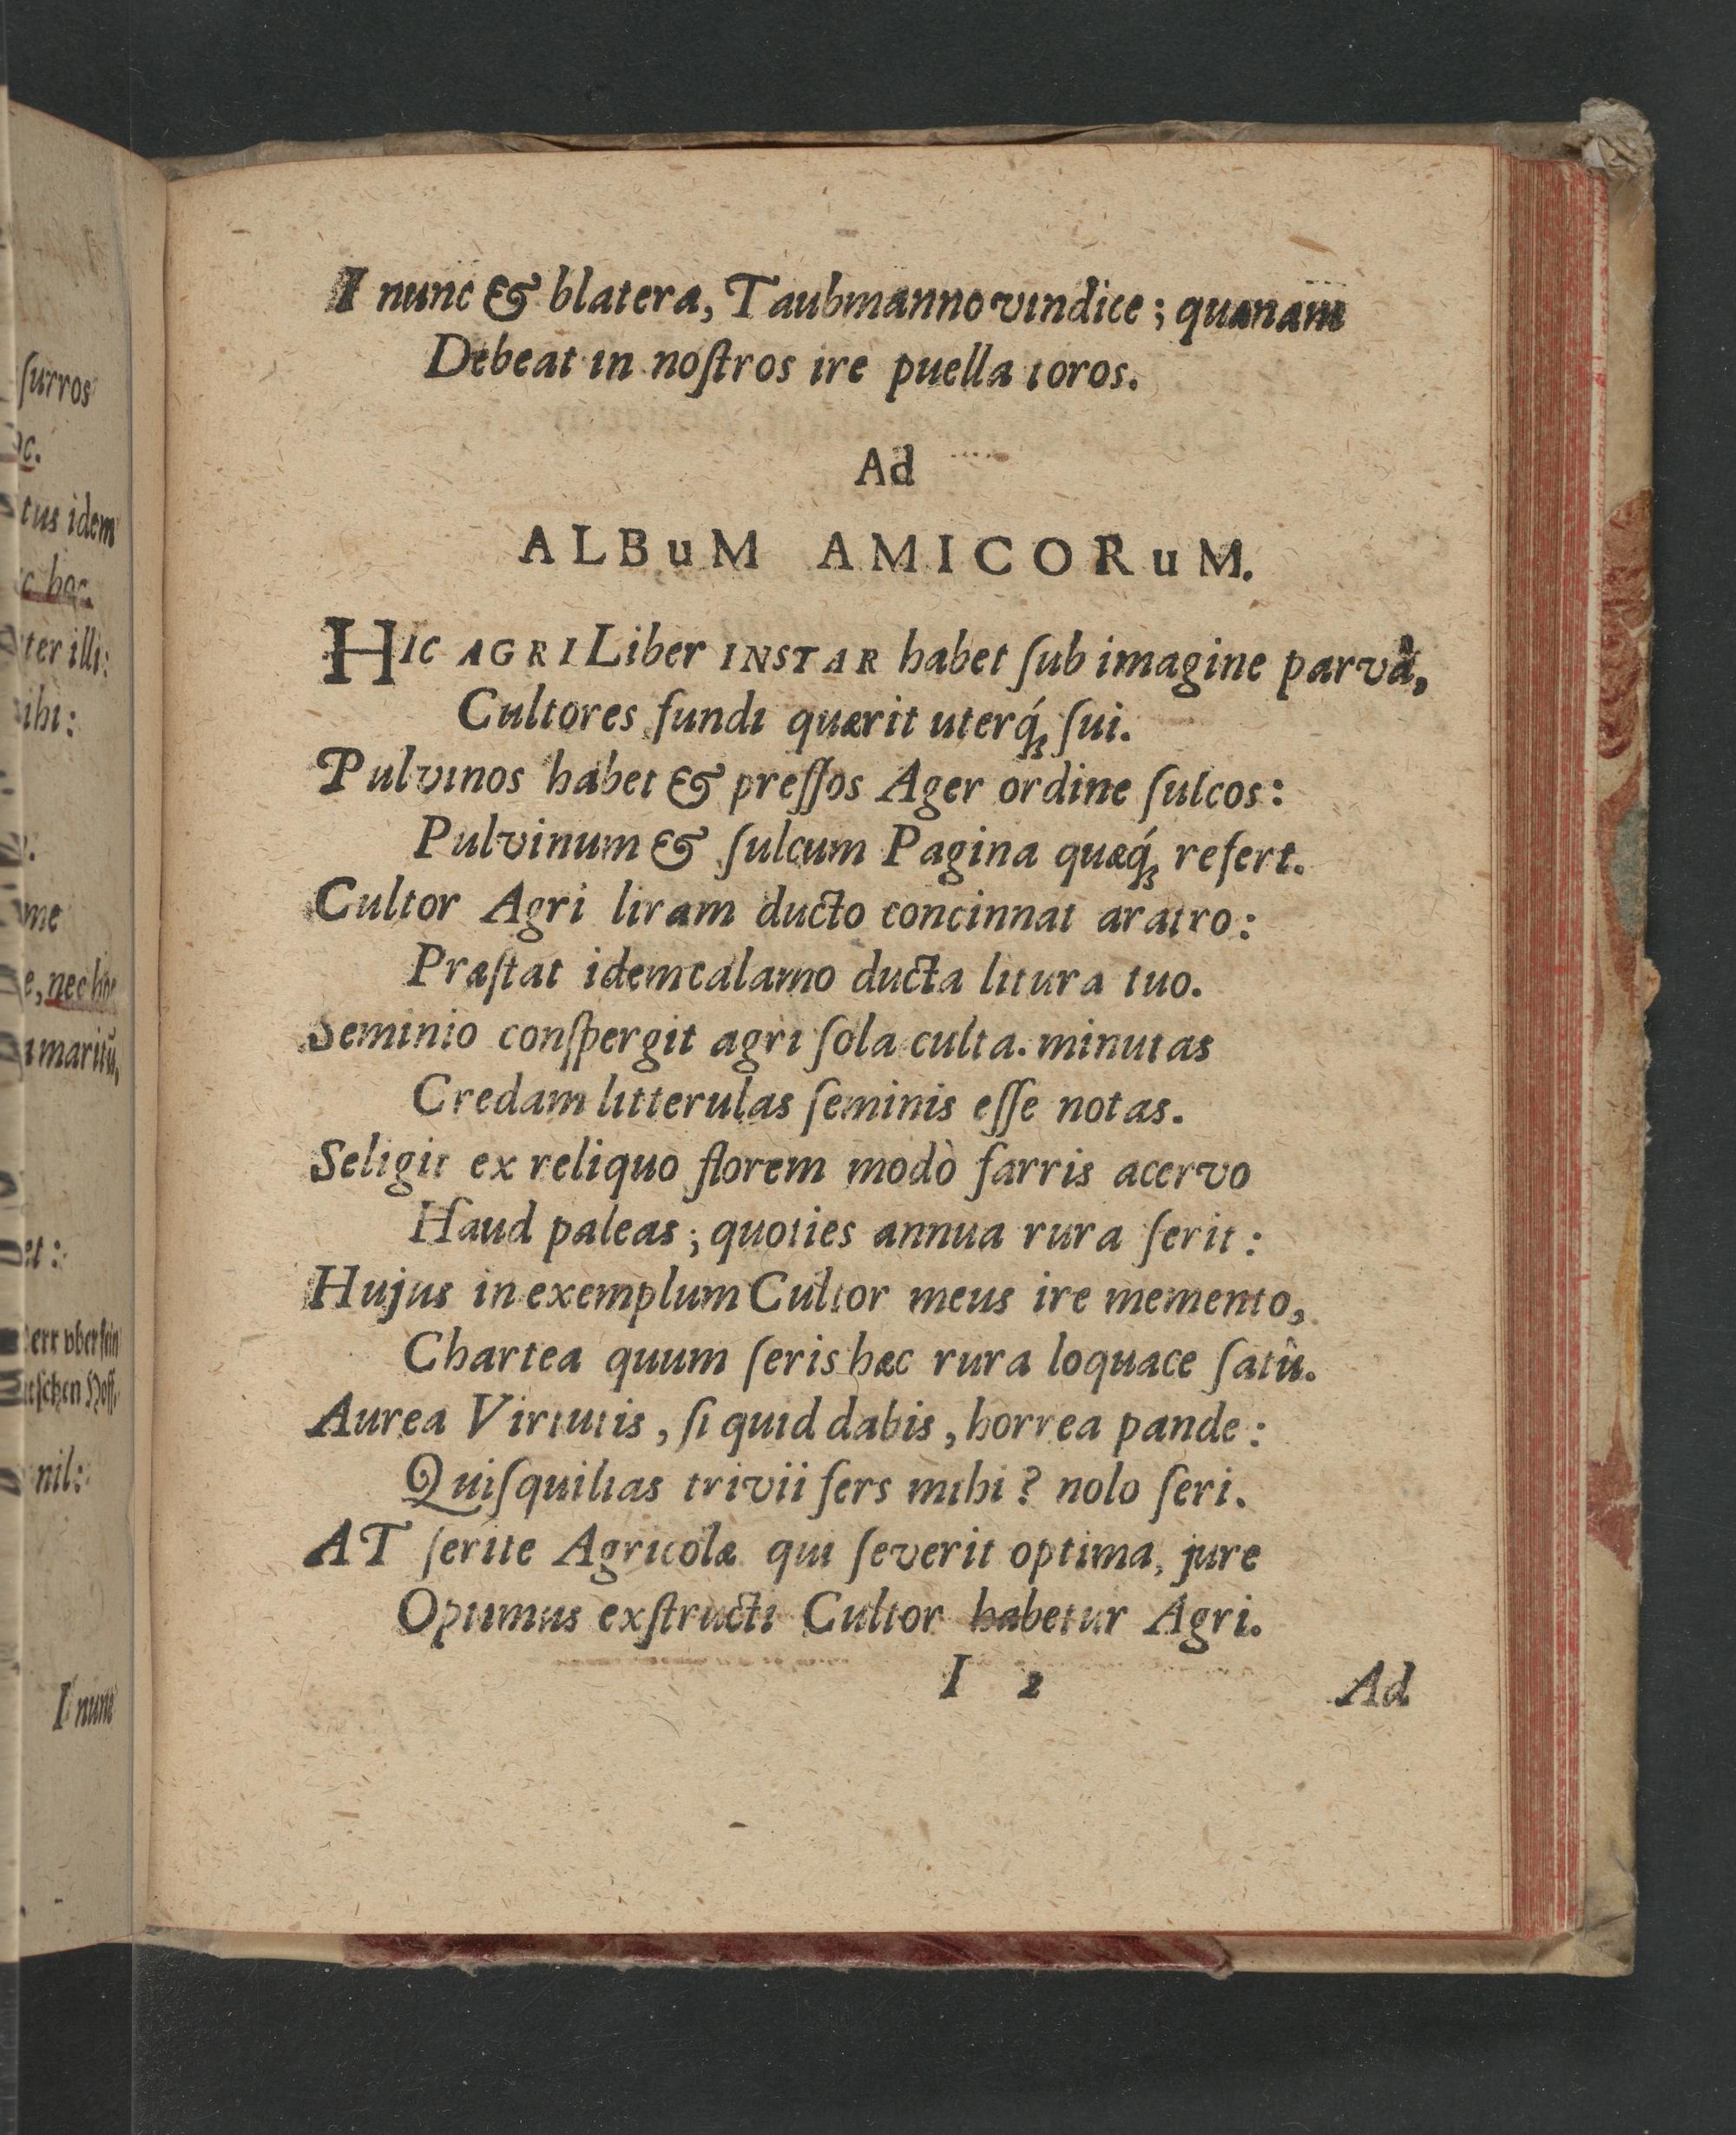 ſurros
c.
tus idem
c hoc.
ter illi:
ihi:
me
e, nec hoc
maritū,
et:
err vber ſein
nil:
I nunc
I nunc & blatera, Taubmanno vindice; quanam
Debeat in noſtros ire puella toros.
Ad
ALBuM AMICORuM.
HIC AGRI Liber INSTAR habet ſub imagine parvâ,
Cultores fundi quærit uterq́ꝫ ſui.
Pulvinos habet & preſſos Ager ordine ſulcos:
Pulvinum & ſulcum Pagina quæq́ꝫ refert.
Cultor Agri liram ducto concinnat aratro:
Præſtat idem calamo ducta litura tuo.
Seminio conſpergit agri ſola culta. minutas
Credam litterulas ſeminis eſſe notas.
Seligit ex reliquo florem modò farris acervo
Haud paleas; quoties annua rura ſerit:
Hujus in exemplum Cultor meus ire memento,
Chartea quum ſeris hæc rura loquace ſatû.
Aurea Virtutis, ſi quid dabis, horrea pande:
Quiſquilias trivii fers mihi? nolo ſeri.
AT ſerite Agricolæ qui ſeverit optima, jure
Optimus exſtructi Cultor habetur Agri.
I 2 Ad